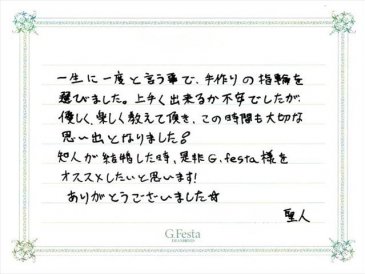 一生に一度と言う事で、手作りの指輪を
選びました。上手く出来るか不安でしたが
優しく、楽しく教えて頂き、この時間も大切な
思い出となりました!
知人が結婚した時、是非G.festa様を
オススメしたいと思います!
ありがとうございました☆
聖人
G.Festa